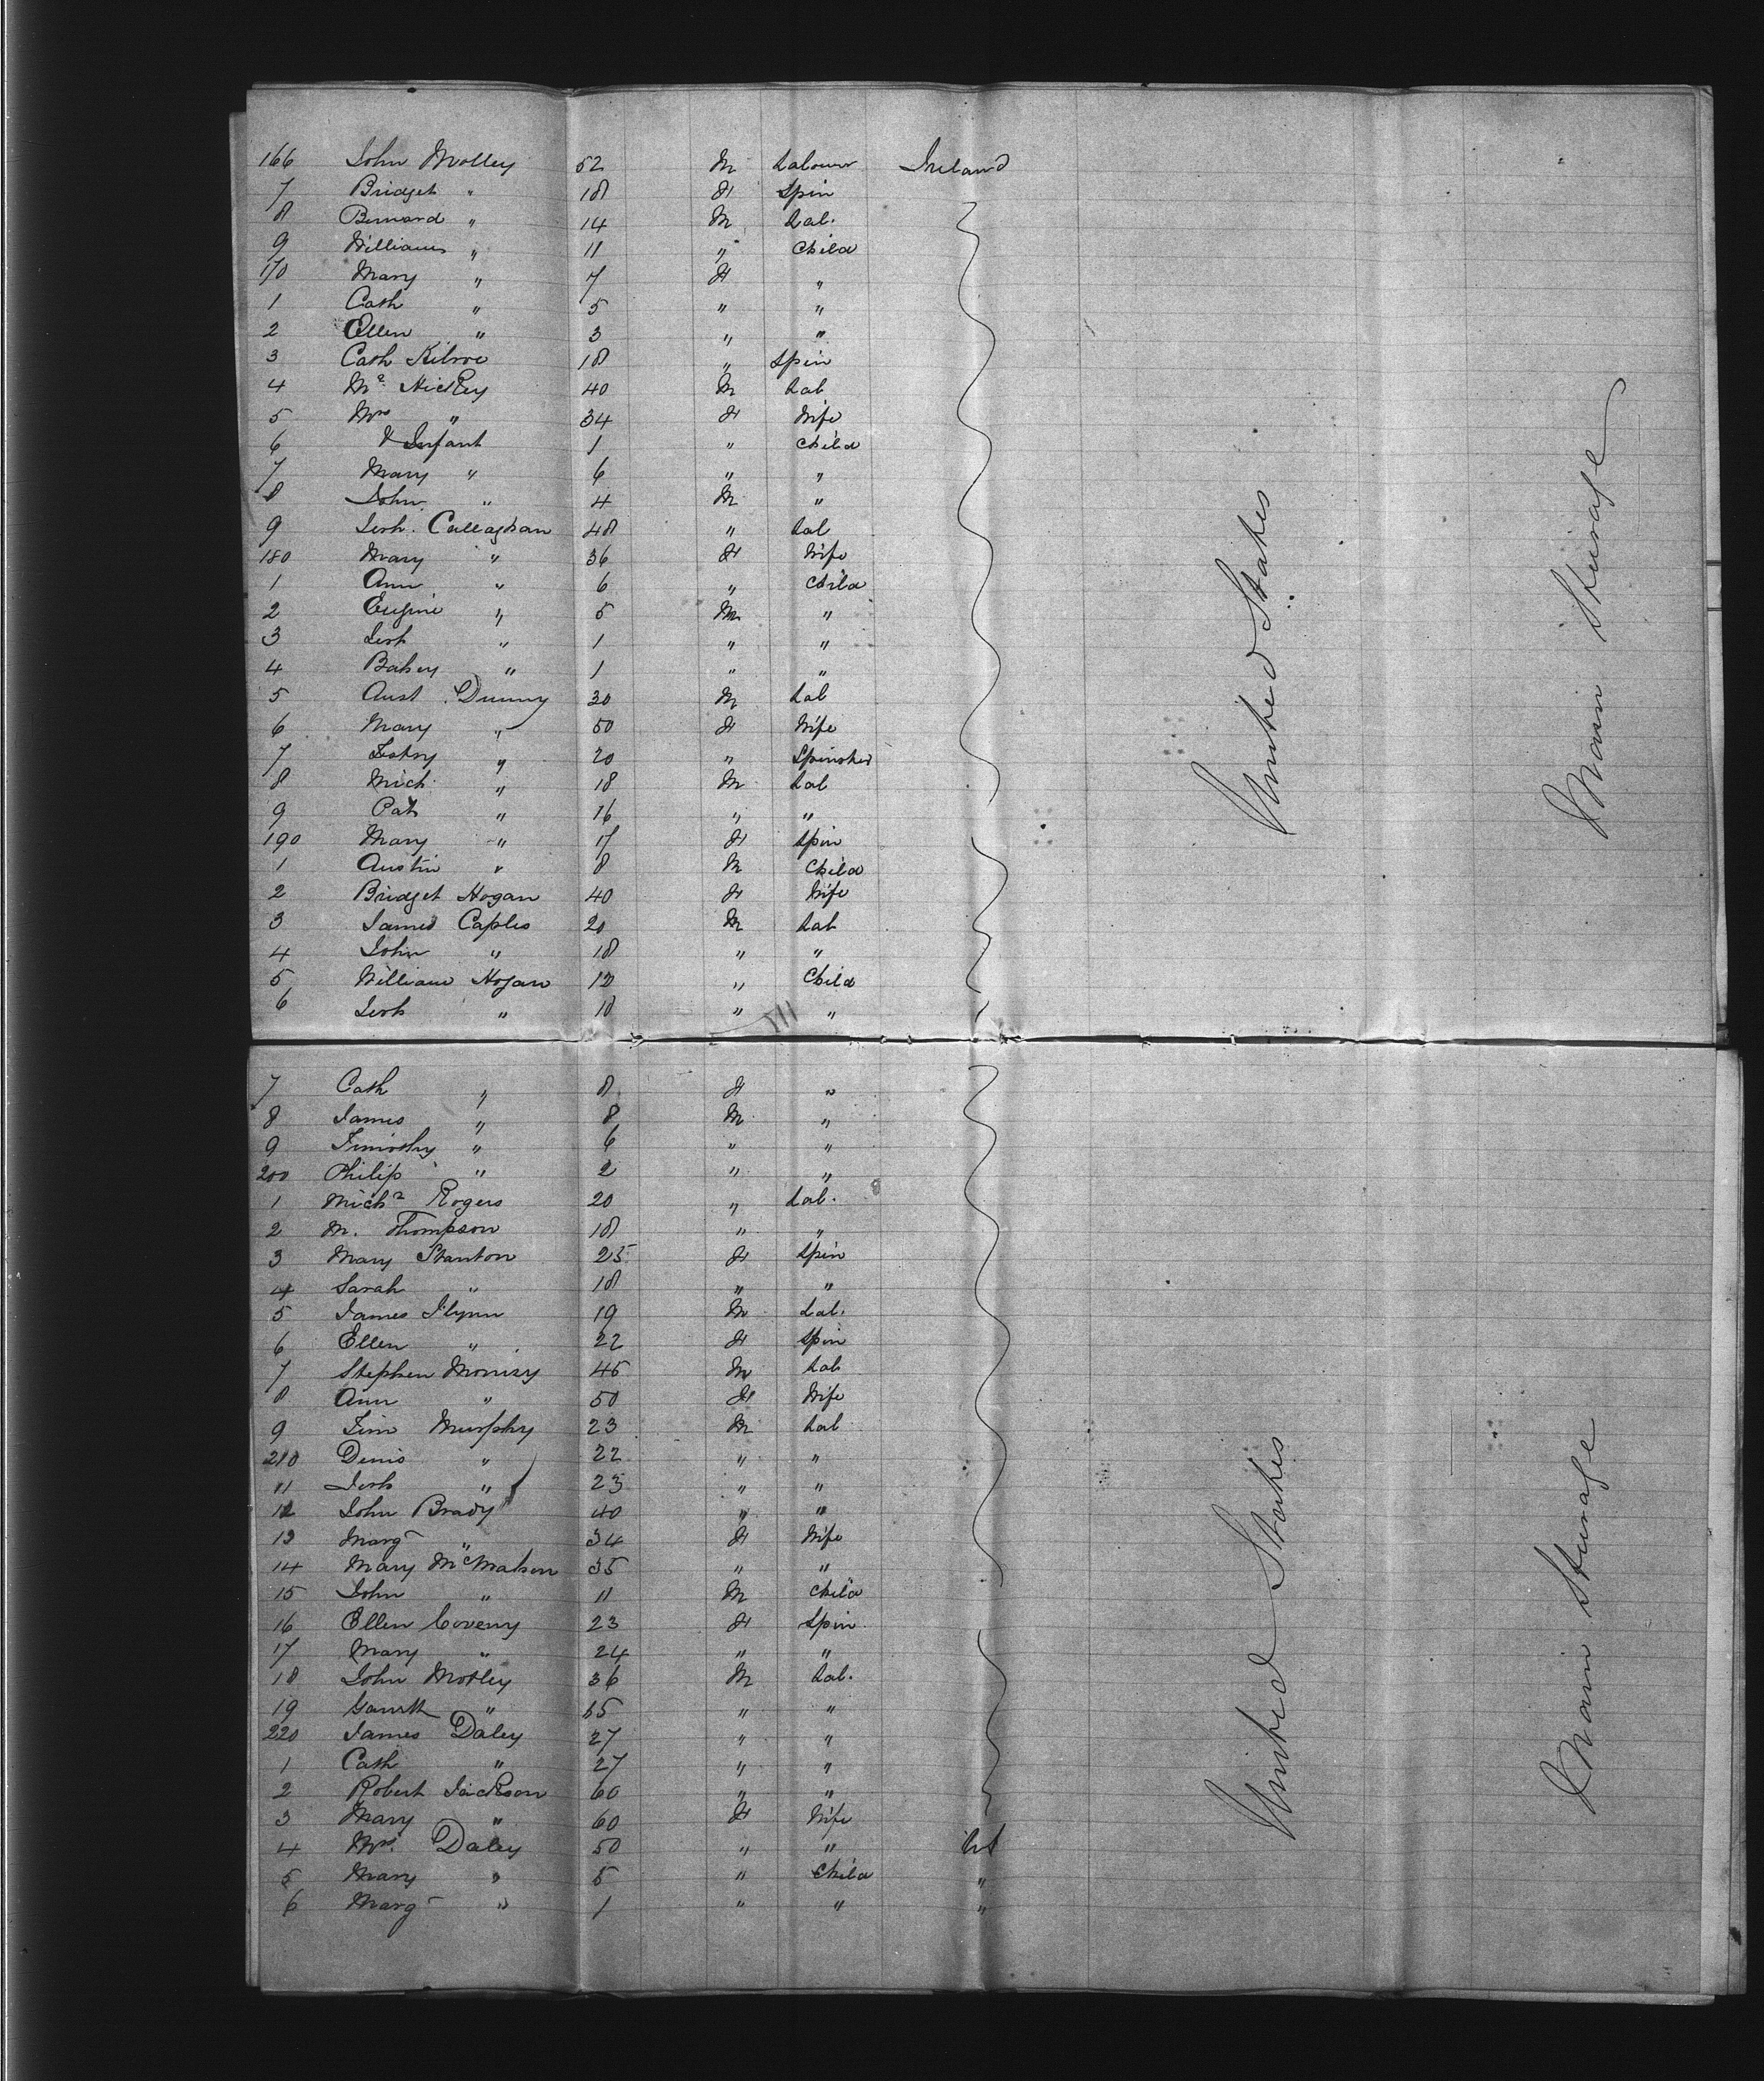 166 John Molley 52 M Labourer Ireland
7 Bridget " 18 F Spin
8 Bernard " 14 M Lab.
9 William " 11 " Child
170 Mary " 7 F "
1 Cath " 5 " "
2 Ellen " 3 " "
3 Cath Kilroe 18 " Spin
4 Mr. Hickey 40 M Lab
5 Mrs " 34 F Wife
6 & Infant 1 " Child
7 Mary " 6 " "
8 John " 4 M "
9 Jerh. Callaghan 48 " Lab
180 Mary " 36 F Wife
1 Ann " 6 " Child
2 Eugine " 5 M "
3 Jerh " 1 " "
4 " 1 " "
5 Aust. Dunny 30 M Lab
6 Mary " 50 F Wife
7 " 20 " Spinster
8 Mich " 18 M Lab
9 Pat " 16 " "
190 Mary " 17 F Spin
1 Austin " 8 M Child
2 Bridget Hogan 40 F Wife
3 James Caples 20 M Lab
4 John " 18 " "
5 William Hogan 12 " Child
6 Jerh " 10 " "
United States
Main Steerage
7 Cath " 8 F "
8 James " 8 M "
9 Timothy " 6 " "
200 Philip " 2 " "
1 Michl Rogers 20 " Lab.
2 M. Thompson 18 " "
3 Mary Stanton 25 F Spin
4 Sarah " 18 " "
5 James Flynn 19 M Lab.
6 Ellen " 22 F Spin
7 Stephen Morrisy 45 M Lab
8 Ann " 50 F Wife
9 Tim Murphy 23 M Lab
210 Denis " 22 " "
11 Jerh " 23 " "
12 John Brady 40 " "
13 Margt " 34 F Wife
14 Mary McMahon 35 " "
15 John " 11 M Child
16 Ellen Coveny 23 F Spin
17 Mary " 24 " "
18 John Motley 36 M Lab.
19 " "  " "
220 James Daley 27 " "
1 Cath " 27 " "
2 Robert Jackson 60 " "
3 Mary " 60 F Wife
4 Mrs. Daley 50 " "
5 Mary " 5 " Child "
6 Margt " 1 " " "
United States
Main Steerage